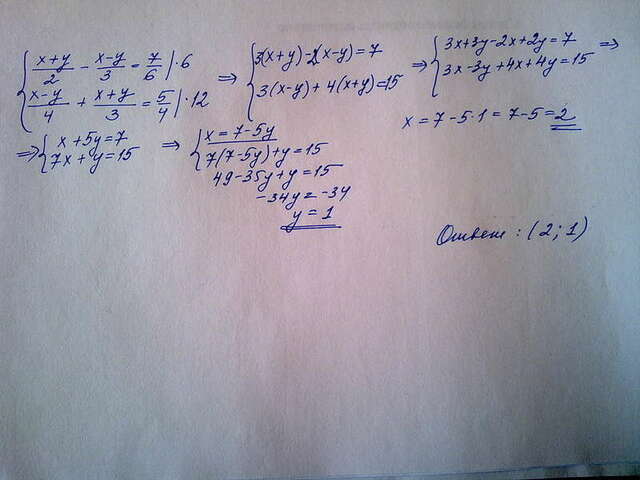 { (x+y)/2 - (x-y)/3 = 7/6 | · 6
(x-y)/4 + (x+y)/3 = 5/4 | · 12
⇒ { 3(x+y) - 2(x-y) = 7
3(x-y) + 4(x+y) = 15
⇒ { 3x+3y-2x+2y = 7
3x-3y+4x+4y = 15 ⇒
⇒ { x + 5y = 7
7x + y = 15
⇒ { x = 7-5y
7(7-5y)+y = 15
49-35y+y = 15
-34y = -34
y = 1
x = 7-5·1 = 7-5 = 2
Ответ : (2; 1)